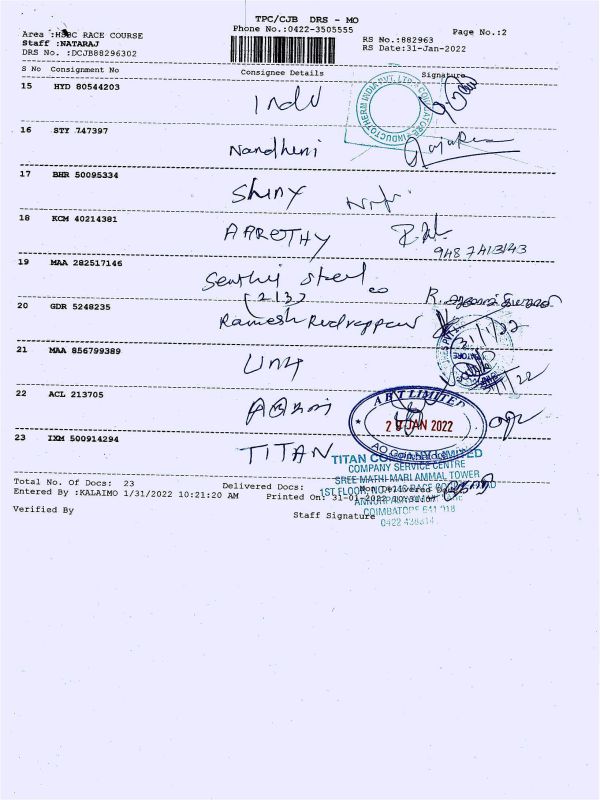 TPC/CJB DRS - MO
Phone No.:0422-3505555
Page No.:2
Area :HSBC RACE COURSE
RS No.:882963
Staff :NATARAJ
RS Date:31-Jan-2022
DRS No. :DCJB88296302
S No Consignment No Consignee Details Signature
15 HYD 80544203 Indu
INDUCTOTHERM INDIA PVT. LTD. COIMBATORE
16 STY 747397 Nandhini
17 BHR 50095334 Shiny
18 KCM 40214381 AAROTHY
9487413143
19 MAA 282517146 Senthil Steel co
(213) R.
20 GDR 5248235 Ramesh
31/1/22
21 MAA 856799389 Unq
22 ACL 213705
ABT LIMITED
JAN 2022
23 IXM 500914294 TITAN
TITAN COMPANY LIMITED
COMPANY SERVICE CENTRE
SREE MATHI MARI AMMAL TOWER
Total No. Of Docs: 23 Delivered Docs: Non-Delivered Docs:
1ST FLOOR, RACE
Entered By :KALAIMO 1/31/2022 10:21:20 AM Printed On: 31-01-2022
COIMBATORE 641 018
Verified By Staff Signature
0422